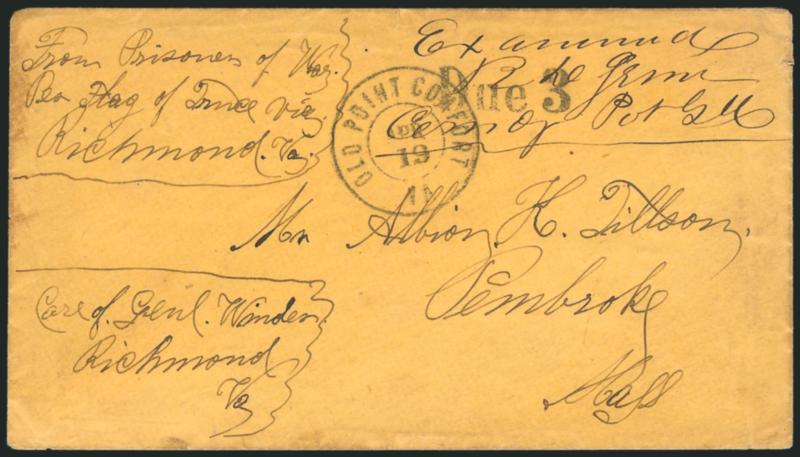 From Prisoner of War.
Per Flag of Truce via
Richmond. Va.
Examined
Due 3
OLD POINT COMFORT
19
Mr Albion. K. Tillson.
Pembroke
Mass
Care of. Genl. Winder.
Richmond
Va